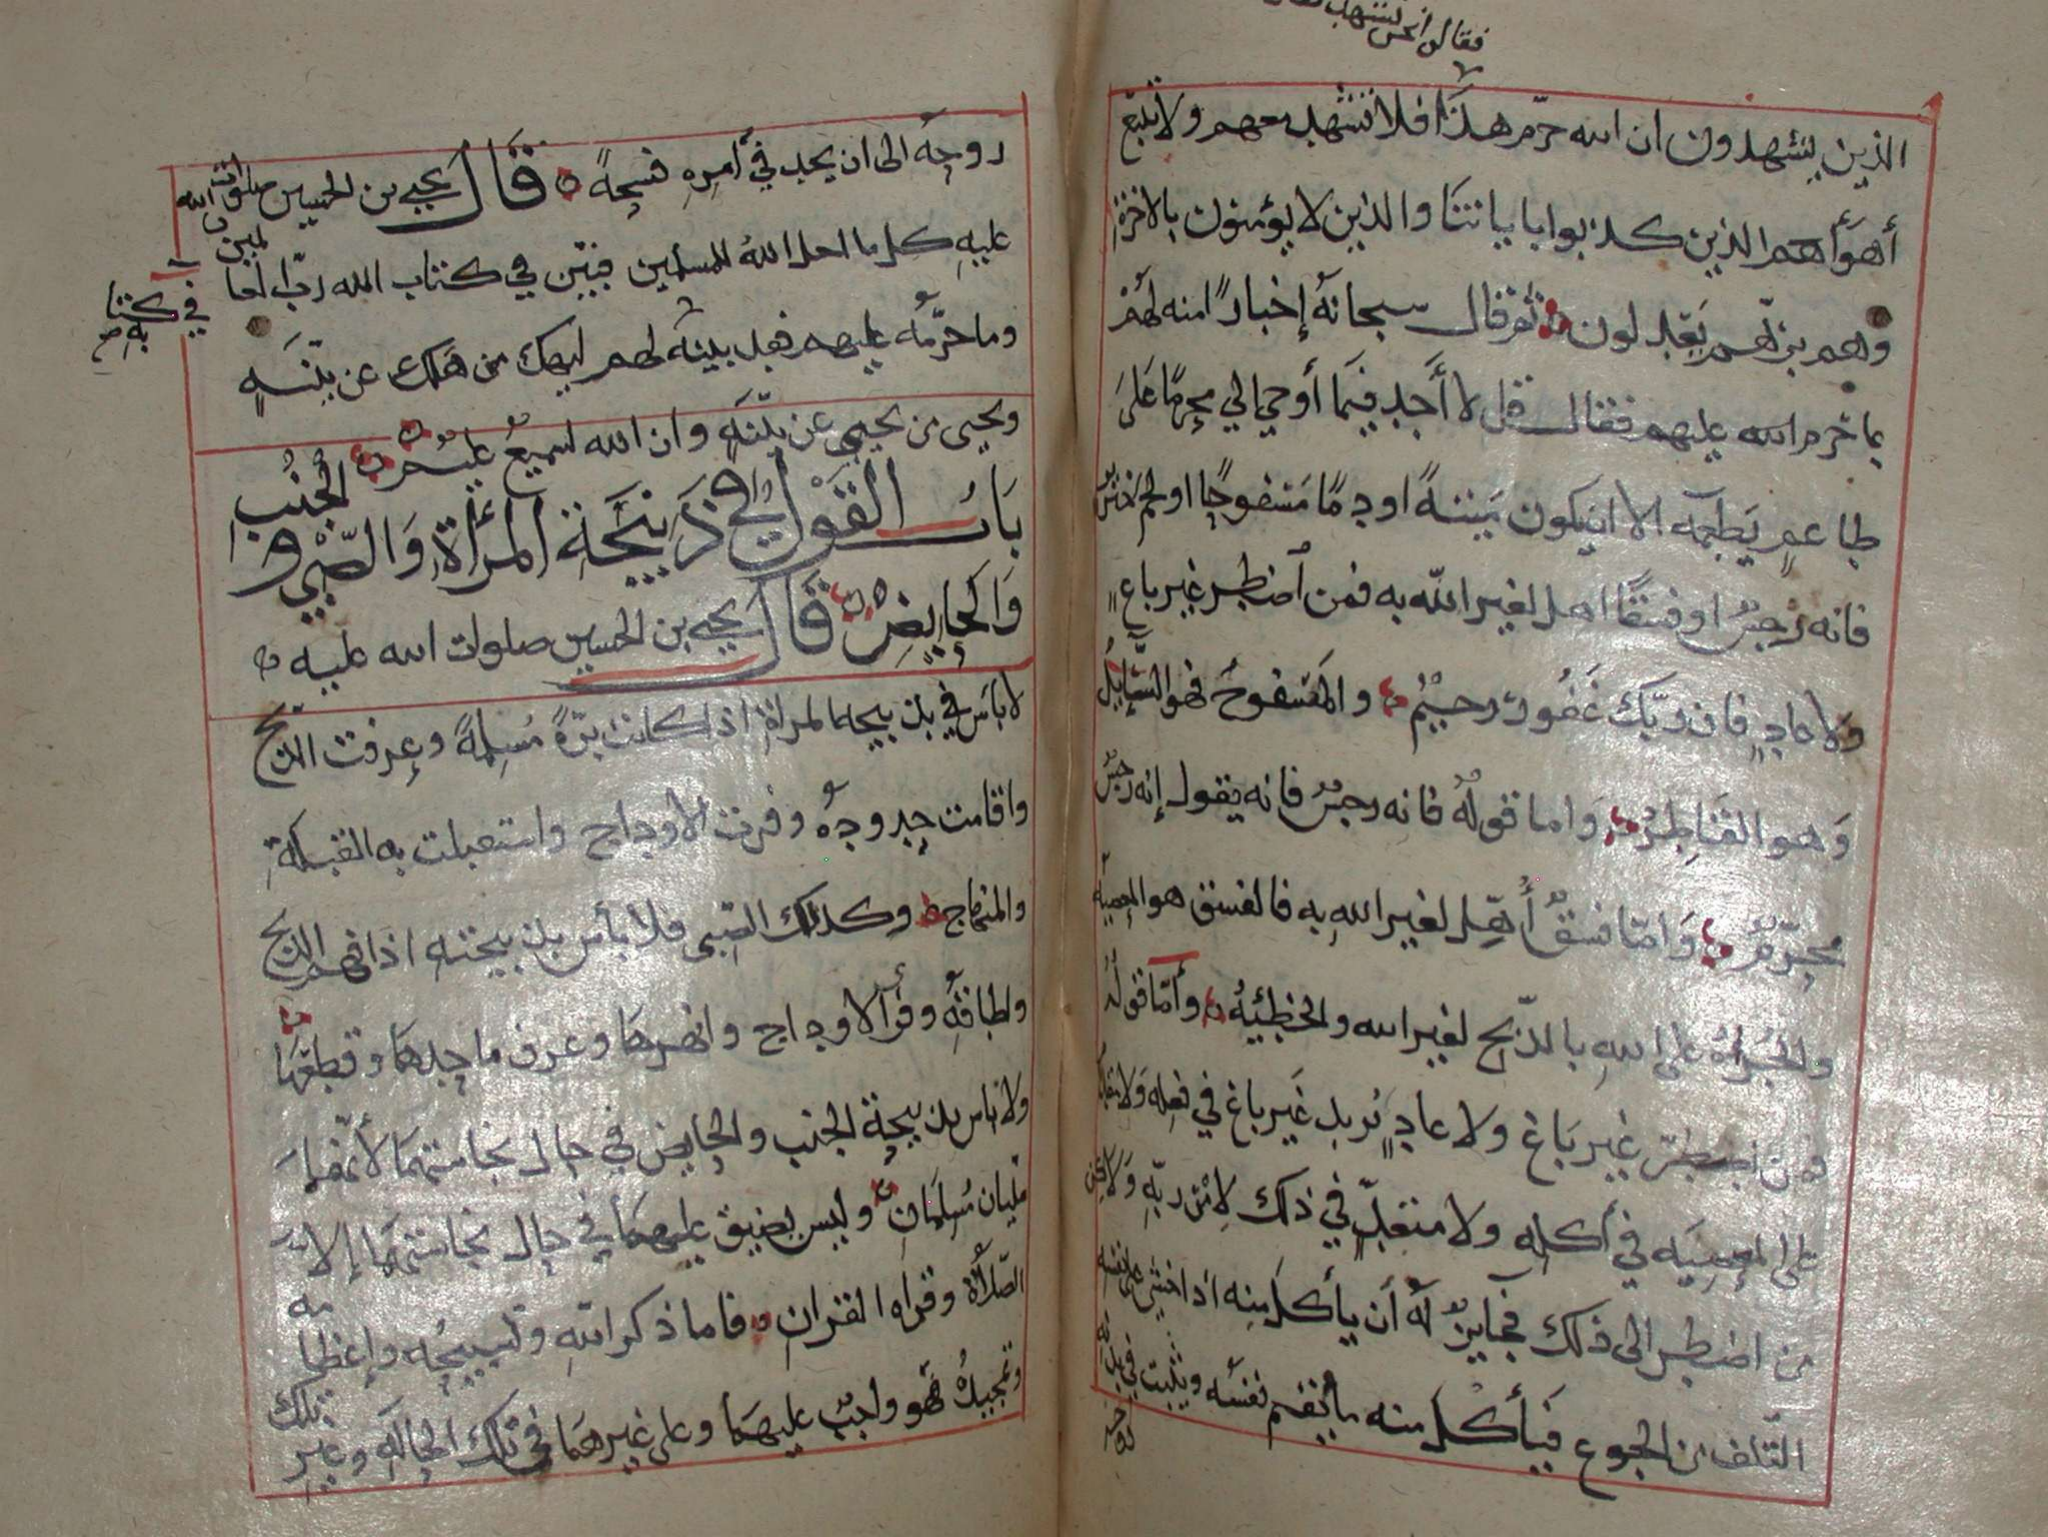 فقال فإن شهد
الذين يشهدون ان الله حرم هذا فلا تشهد معهم ولا تتبع
أهواءهم الذين كذبوا باياتنا والذين لا يؤمنون بالاخرة
وهم بربهم يعدلون ثم قال سبحانه إخبارًا منه لهم
بما حرم الله عليهم فقال قل لا أجد فيما أوحي الي محرمًا على
طاعمٍ يَطعمه الا ان يكون ميتةً او دمًا مسفوحًا او لحم خنزير
فانه رجسٌ او فسقًا اهل لغير الله به فمن اضطر غير باغٍ
ولا عادٍ فان ربك غفور رحيم والمسفوح فهو السايل
وهو القاطر واما قوله فانه رجس فانه يقول إنه رجس
محرّم وامّا فسقٌ أُهِل لغير الله به فالفسق هو المعصية
والجُرأة على الله بالذبح لغير الله والخطيئة وأمّا قوله
فمن اضطرّ غير باغ ولا عادٍ يُريد غير باغ في فعله ولا
على المعصية في أكله ولا متعدٍّ في ذلك لامر ربه ولا
من اضطر الى ذلك فجايز له أن يأكل منه اذا خشي على نفسه
التلف من الجوع فيأكل منه ما يقيم نفسه ويثبت في بدنه
روحه
روحه الى ان يجد في أمره فسحةً قال يحيى بن الحسين صلوات الله
عليه كل ما احل الله للمسلمين فبيّن في كتاب الله ربّ العالمين
وما حرّمه عليهم فقد بينه لهم ليهلك من هلك عن بيّنةٍ
في كتابه صح
ويحيى من يحيي عن بيّنةٍ وان الله لسميعٌ عليمٌ
بابُ القول في ذبيحة المرأة والصّبي والجُنُب
والحايض قال يحيى بن الحسين صلوات الله عليه
لا بأس في بذبيحة المراة اذا كانت برّةً مُسلمةً وعرفت الذبح
واقامت حدوده وفرت الاوداج واستقبلت به القبلة
والمنهاج وكذلك الصّبي فلا بأس بذبيحته اذا فهم الذبح
ولطاقه وفرأ الاوداج وانهرها وعرف ما حدها وقطعها
ولا باس بذبيحة الجنب والحايض في حال نجاستهما لأنهما
مليان مُسلمان وليس يضيق عليهما في حال نجاستهما إلا
الصّلاة وقراه القران فاما ذكر الله وتسبيحه وإعظامه
وتمجيده فهو واجبٌ عليهما وعلى غيرهما في تلك الحاله وغير
تلك